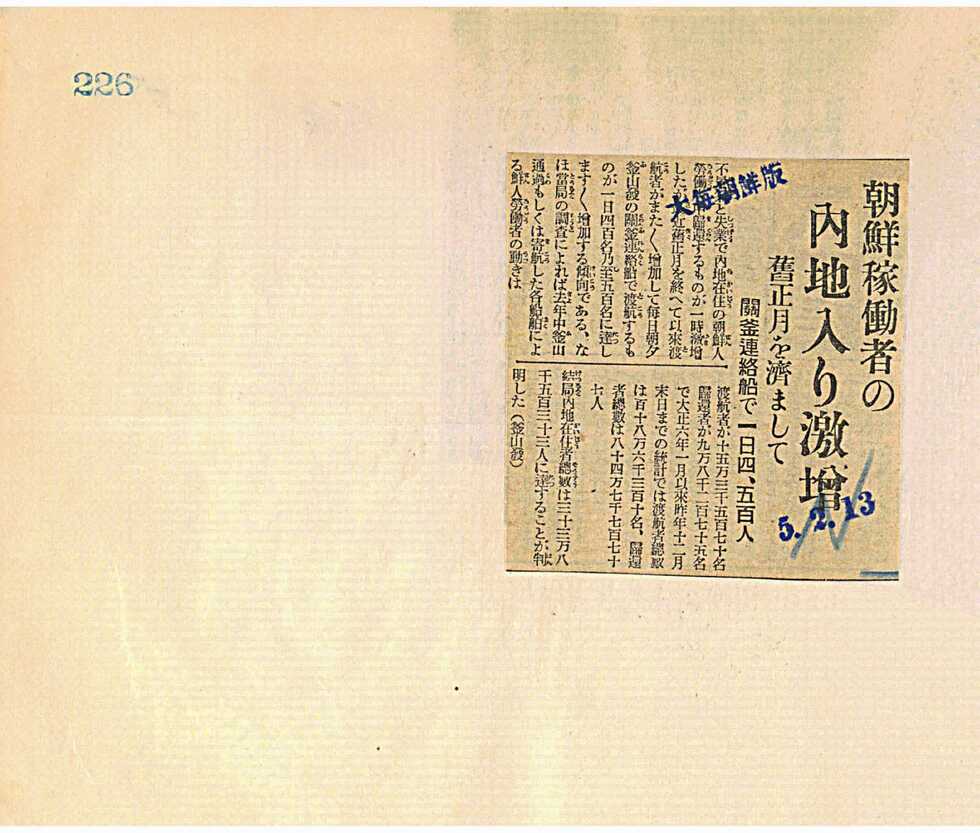 226
朝鮮稼働者の
內地入り激增
舊正月を濟まして
關釜連絡船で一日四、五百人
大每朝鮮版
5.2.13
不 と失業で内地在住の朝鮮人
勞働 歸還するものが一時激增
したが 舊正月を終へて以來渡
航者がまた〱增加して每日朝夕
釜山發の關釜連絡船で渡航するも
のが一日四百名乃至五百名に達し
ます〱增加する傾向である、な
ほ當局の調査によれば去年中釜山
通過もしくは寄航した各船舶によ
る鮮人勞働者の動きは
渡航者が十五万三千五百七十名
歸還者が九万八千二百七十五名
で大正六年一月以來昨年十二月
末日までの統計では渡航者總數
は百十八万六千三百十名、歸還
者總數は八十四万七千七百七十
七人
結局内地在住者總數は三十三万八
千五百三十三人に達することが判
明した(釜山發)